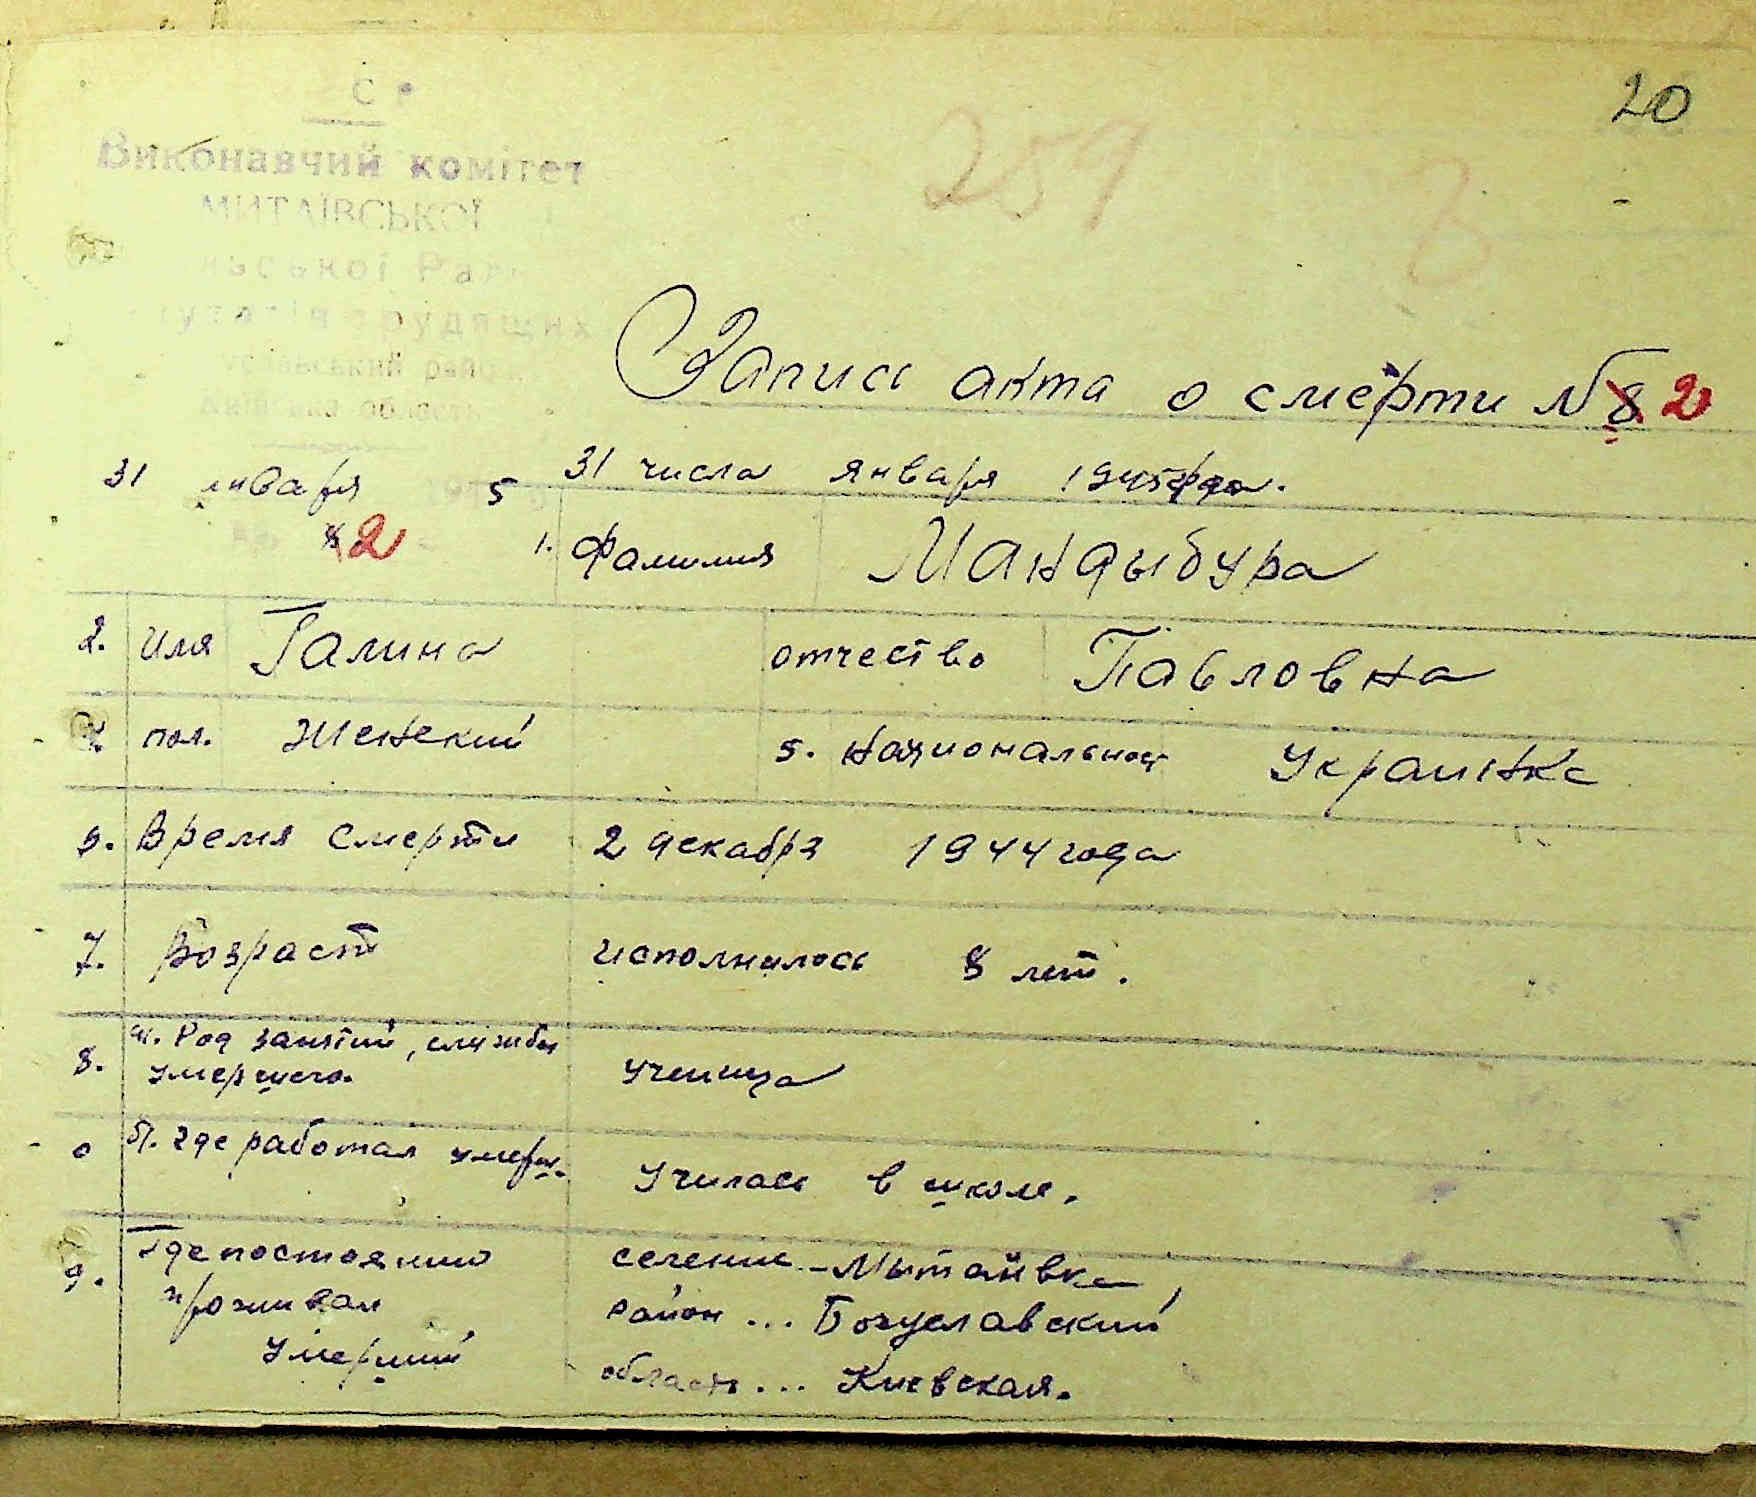 20
251
Виконавчий комітет
МИТАЇВСЬКОЇ
Запись акта о смерти № 8 2
31 января 5
31 числа января 1945 года.
8 2
1. Фамилия Мандыбура
2. Имя Галина отчество Павловна
пол. Женский 5. Национальност Украинка
6. Время смерти 2 декабря 1944 года
7. Возраст исполнилось 8 лет.
8. а. Род занятий, службы умершего. ученица
б. Где работал умерш. училась в школе.
9. Где постоянно проживал умерший
селение - Мытайвка,
район ... Богуславский
область ... Киевская.